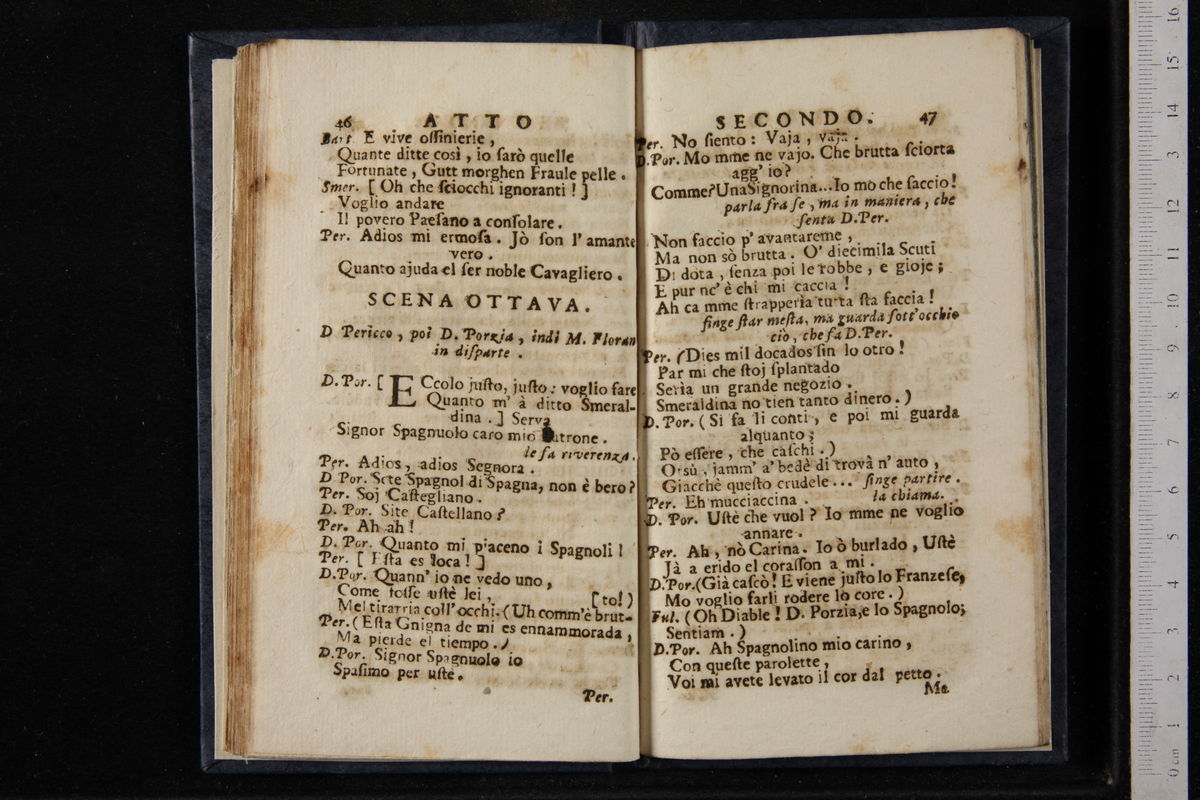 46 ATTO
Bart E vive ossinierie,
Quante ditte così, io sarò quelle
Fortunate, Gutt morghen Fraule pelle.
Smer. [ Oh che sciocchi ignoranti! ]
Voglio andare
Il povero Paesano a consolare.
Per. Adios mi ermosa. Jò son l'amante
vero.
Quanto ajuda el ser noble Cavagliero.
SCENA OTTAVA.
D Pericco, poi D. Porzia, indi M. Floran
in disparte.
D. Por. [ ECcolo justo, justo: voglio fare
Quanto m' à ditto Smeral-
dina. ] Serva
Signor Spagnuolo caro mio Patrone.
le fa riverenza.
Per. Adios, adios Segnora.
D Por. Sete Spagnol di Spagna, non è bero?
Per. Soj Castegliano.
D. Por. Site Castellano?
Per. Ah ah!
D. Por. Quanto mi piaceno i Spagnoli!
Per. [ Esta es loca! ]
D.Por. Quann' io ne vedo uno,
Come fosse ustè lei, [to!)
Mel tirarria coll' occhi. (Uh comm'è brut-
Per. (Esta Gnigna de mi es ennammorada,
Ma pierde el tiempo.)
D.Por. Signor Spagnuolo io
Spasimo per ustè.
Per.
SECONDO. 47
Per. No siento: Vaja, vaja.
D.Por. Mo mme ne vajo. Che brutta sciorta
agg' io?
Comme? Una Signorina... Io mò che faccio!
parla fra se, ma in maniera, che
senta D.Per.
Non faccio p' avantareme,
Ma non sò brutta. O' diecimila Scuti
Di dota, senza poi le robbe, e gioje;
E pur nc' è chi mi caccia!
Ah ca mme strapperìa tutta sta faccia!
finge star mesta, ma guarda sott'occhio
ciò, che fa D.Per.
Per. (Dies mil docados sin lo otro!
Par mi che stoj splantado
Serìa un grande negozio.
Smeraldina no tien tanto dinero.)
D.Por. (Si fa li conti, e poi mi guarda
alquanto;
Pò essere, che caschi.)
Orsù, jamm' a' bedè di trovà n' auto,
Giacchè questo crudele... finge partire.
Per. Eh mucciaccina. la chiama.
D. Por. Ustè che vuol? Io mme ne voglio
annare.
Per. Ah, nò Carina. Io ò burlado, Ustè
Jà a erido el corasson a mi.
D.Por.(Già cascò! E viene justo lo Franzese,
Mo voglio farli rodere lo core.)
Ful. (Oh Diable! D. Porzia, e lo Spagnolo;
Sentiam.)
D.Por. Ah Spagnolino mio carino,
Con queste parolette,
Voi mi avete levato il cor dal petto.
Ma
16
15
14
13
12
11
10
9
8
7
6
5
4
3
2
1
0 cm